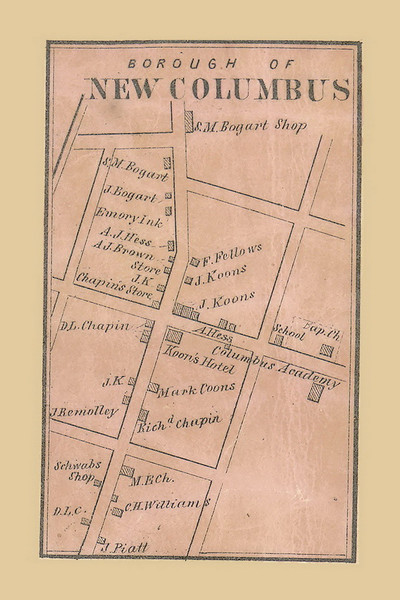 BOROUGH OF
NEW COLUMBUS
S.M. Bogart Shop
S.M. Bogart
J. Bogart
Emory Ink
A.J. Hess
A.J. Brown
Store
J.K
Chapin's Store
F. Fellows
J. Koons
J. Koons
D.L. Chapin
A. Hess
School
Bap. Ch.
Columbus Academy
Koon's Hotel
J.K.
Mark Coons
J. Remolley
Richd Chapin
Schwabs
Shop
M.E Ch.
C.H. Williams
D.L.C.
J. Piatt